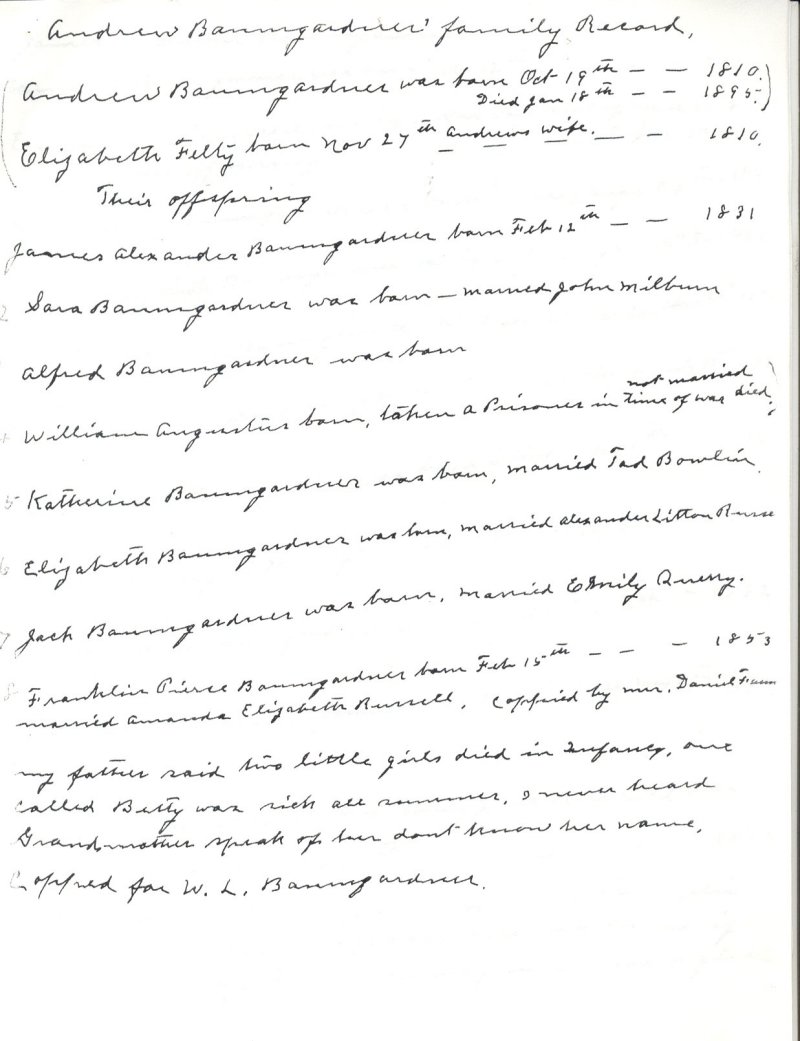 Andrew Baumgardner' family Record,
Andrew Baumgardner was born Oct 19th — — 1810.
Died Jan 18th — — 1895.)
Elizabeth Felty born Nov 27th Andrews wife. — — 1810.
Their offspring
James Alexander Baumgardner born Feb 12th — — 1831
2 Sara Baumgardner was born — married John Milburn
Alfred Baumgardner was born
not married
William Augustus born, taken a Prisoner in time of war died,
5 Katherine Baumgardner was born, married Tad Bowlin.
6 Elizabeth Baumgardner was born, married Alexander Litton Russe
7 Jack Baumgardner was born, married Emily Querry.
8 Franklin Pierce Baumgardner born Feb 15th — — — 1853
married Amanda Elizabeth Russell. Coppied by mr. Daniel
my father said two little girls died in Infancy, one
called Betty was sick all summer, I never heard
Grandmother speak of her dont know her name,
Coppied for W. L. Baumgardner.